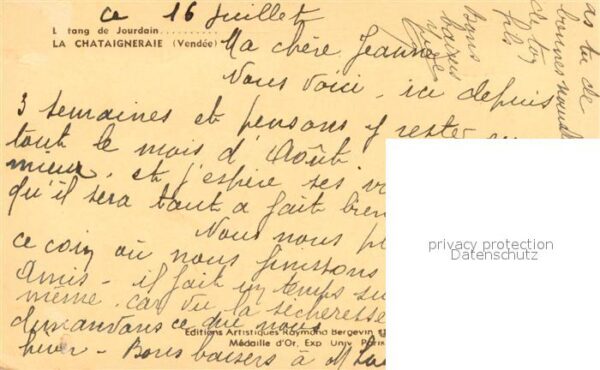 ce 16 Juillet
L' tang de Jourdain..........
LA CHATAIGNERAIE (Vendée)
Ma chère Jeanne
Nous voici - ici depuis
3 semaines et pensons y rester
tout le mois d'Août
mieux. et j'espère
qu'il sera tout a fait bien
Nous nous
ce coin où nous finissons
Amis - il fait un temps
même. car vu la sécheresse
ce que nous
hiver - Bons baisers à M
as tu de
bonnes nouv
de ton
fils
Bons
baisers
Editions Artistiques Raymond Bergevin
Médaille d'Or, Exp Univ Paris
privacy protection
Datenschutz